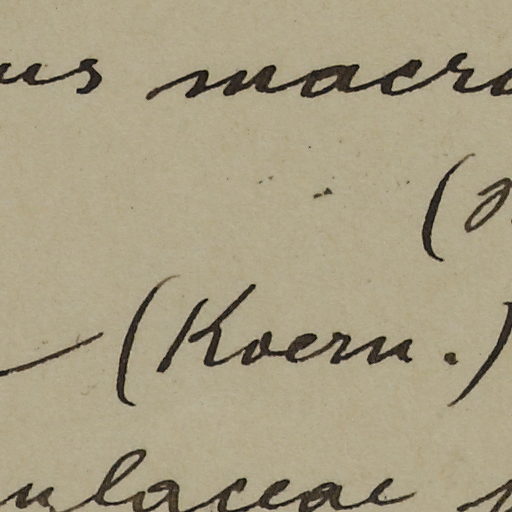 us macro
(
(Koern.)
ulaceae